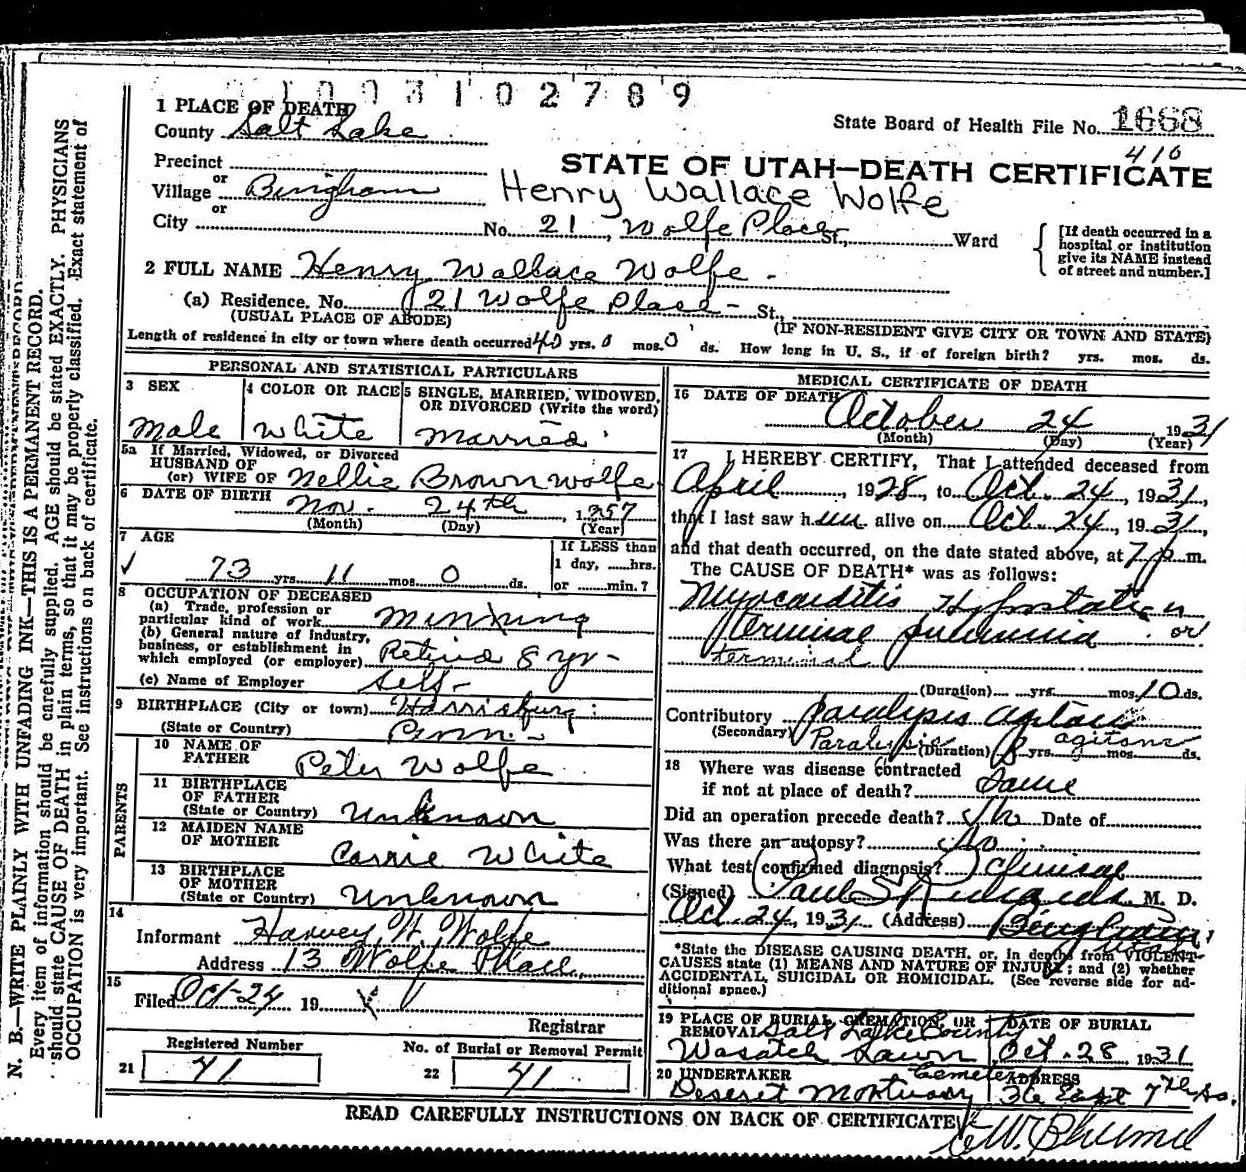 1003102789
1 PLACE OF DEATH
County Salt Lake
State Board of Health File No. 1668
410
Precinct
or
Village Bingham
or
City
STATE OF UTAH—DEATH CERTIFICATE
Henry Wallace Wolfe
No. 21, Wolfe Place St., Ward
[If death occurred in a hospital or institution give its NAME instead of street and number.]
2 FULL NAME Henry Wallace Wolfe.
(a) Residence. No. 21 Wolfe Place - St.,
(USUAL PLACE OF ABODE) (IF NON-RESIDENT GIVE CITY OR TOWN AND STATE)
Length of residence in city or town where death occurred 40 yrs. 0 mos. 0 ds. How long in U. S., if of foreign birth? yrs. mos. ds.
PERSONAL AND STATISTICAL PARTICULARS
3 SEX
Male
4 COLOR OR RACE
White
5 SINGLE, MARRIED, WIDOWED,
OR DIVORCED (Write the word)
Married
5a If Married, Widowed, or Divorced
HUSBAND OF
(or) WIFE OF Nellie Brown Wolfe
6 DATE OF BIRTH
Nov. 24th, 1857
(Month) (Day) (Year)
7 AGE
73 yrs. 11 mos. 0 ds.
If LESS than
1 day, hrs.
or min.?
8 OCCUPATION OF DECEASED
(a) Trade, profession or
particular kind of work Mining
(b) General nature of industry,
business, or establishment in
which employed (or employer) Retired 8 yr -
(c) Name of Employer Self -
9 BIRTHPLACE (City or town) Harrisburg
(State or Country) Penn.
PARENTS
10 NAME OF
FATHER Peter Wolfe
11 BIRTHPLACE
OF FATHER
(State or Country) Unknown
12 MAIDEN NAME
OF MOTHER Carrie White
13 BIRTHPLACE
OF MOTHER
(State or Country) Unknown
14
Informant Harvey W. Wolfe
Address 13 Wolfe Place
15
Filed Oct-24 19
Registrar
Registered Number
21 41
No. of Burial or Removal Permit
22 41
MEDICAL CERTIFICATE OF DEATH
16 DATE OF DEATH
October 24, 1931
(Month) (Day) (Year)
17 I HEREBY CERTIFY, That I attended deceased from
April, 1928, to Oct. 24, 1931,
that I last saw him alive on Oct. 24, 1931,
and that death occurred, on the date stated above, at 7 p.m.
The CAUSE OF DEATH* was as follows:
Myocarditis Hypostatic
or
terminal pneumonia
terminal
(Duration) yrs. mos. 10 ds.
Contributory Paralysis agitans
(Secondary) Paralysis agitans
(Duration) 8 yrs. mos. ds.
18 Where was disease contracted
if not at place of death? Same
Did an operation precede death? No Date of
Was there an autopsy? No.
What test confirmed diagnosis? Clinical
(Signed) Paul S Richards M. D.
Oct. 24, 1931 (Address) Bingham,
Utah
*State the DISEASE CAUSING DEATH, or, in deaths from VIOLENT
CAUSES state (1) MEANS AND NATURE OF INJURY; and (2) whether
ACCIDENTAL, SUICIDAL OR HOMICIDAL. (See reverse side for ad-
ditional space.)
19 PLACE OF BURIAL, CREMATION, OR
REMOVAL Salt Lake County
Wasatch Lawn
Cemetery
DATE OF BURIAL
Oct. 28 1931
20 UNDERTAKER
Deseret Mortuary
ADDRESS
36 East 7th So.
READ CAREFULLY INSTRUCTIONS ON BACK OF CERTIFICATE
N. B.—WRITE PLAINLY WITH UNFADING INK—THIS IS A PERMANENT RECORD.
Every item of information should be carefully supplied. AGE should be stated EXACTLY. PHYSICIANS
should state CAUSE OF DEATH in plain terms, so that it may be properly classified. Exact statement of
OCCUPATION is very important. See instructions on back of certificate.